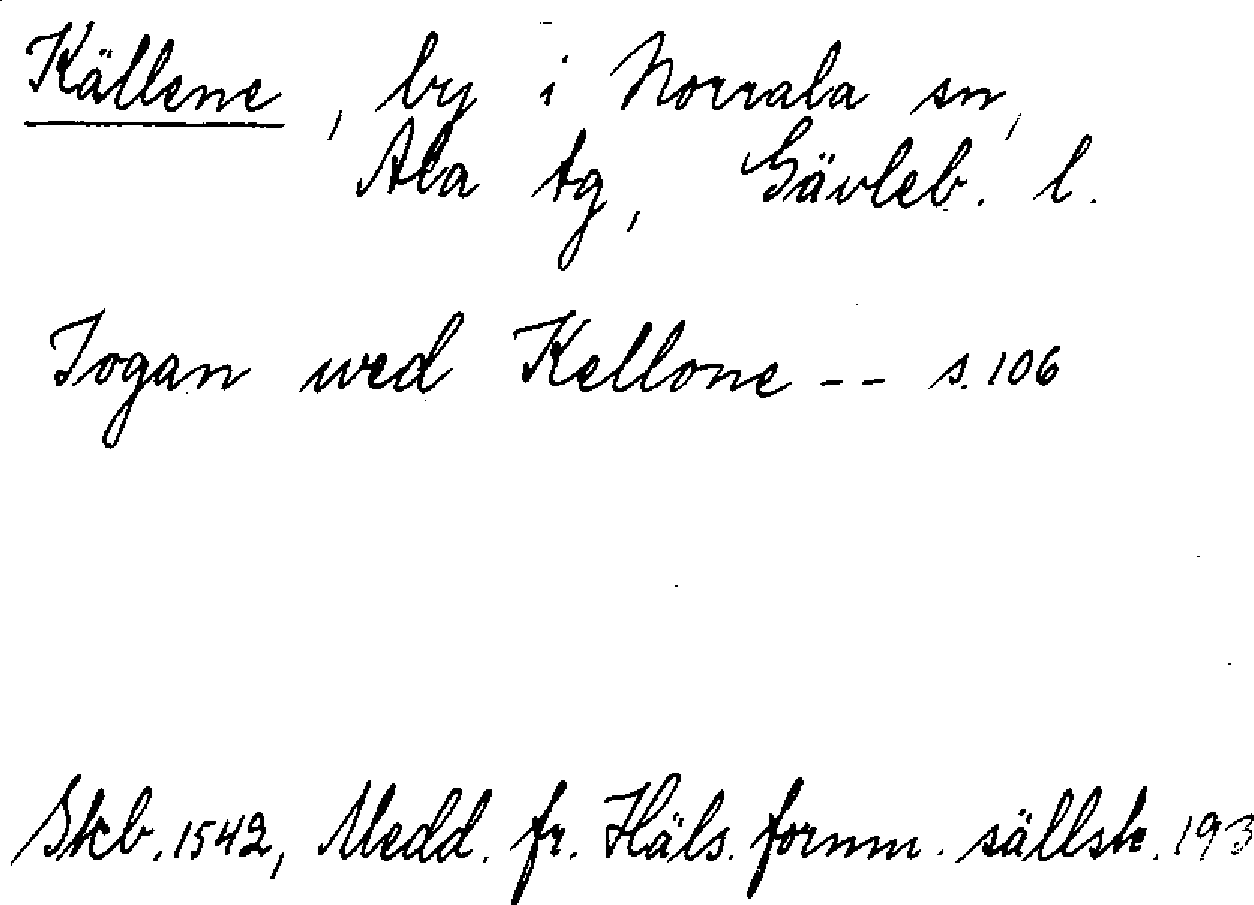 Källene, by i Norrala sn,
Ala tg, Gävleb. l.
Jogan wed Kellone -- s. 106
Skb. 1542, Medd. fr. Häls. fornm. sällsk. 193